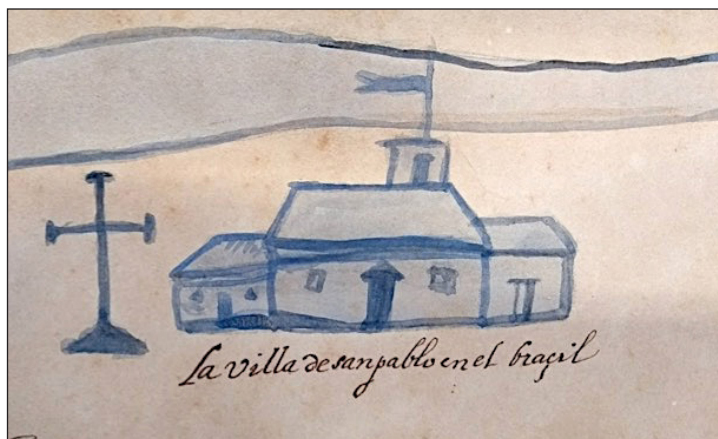 La villa de sanpablo en el braçil